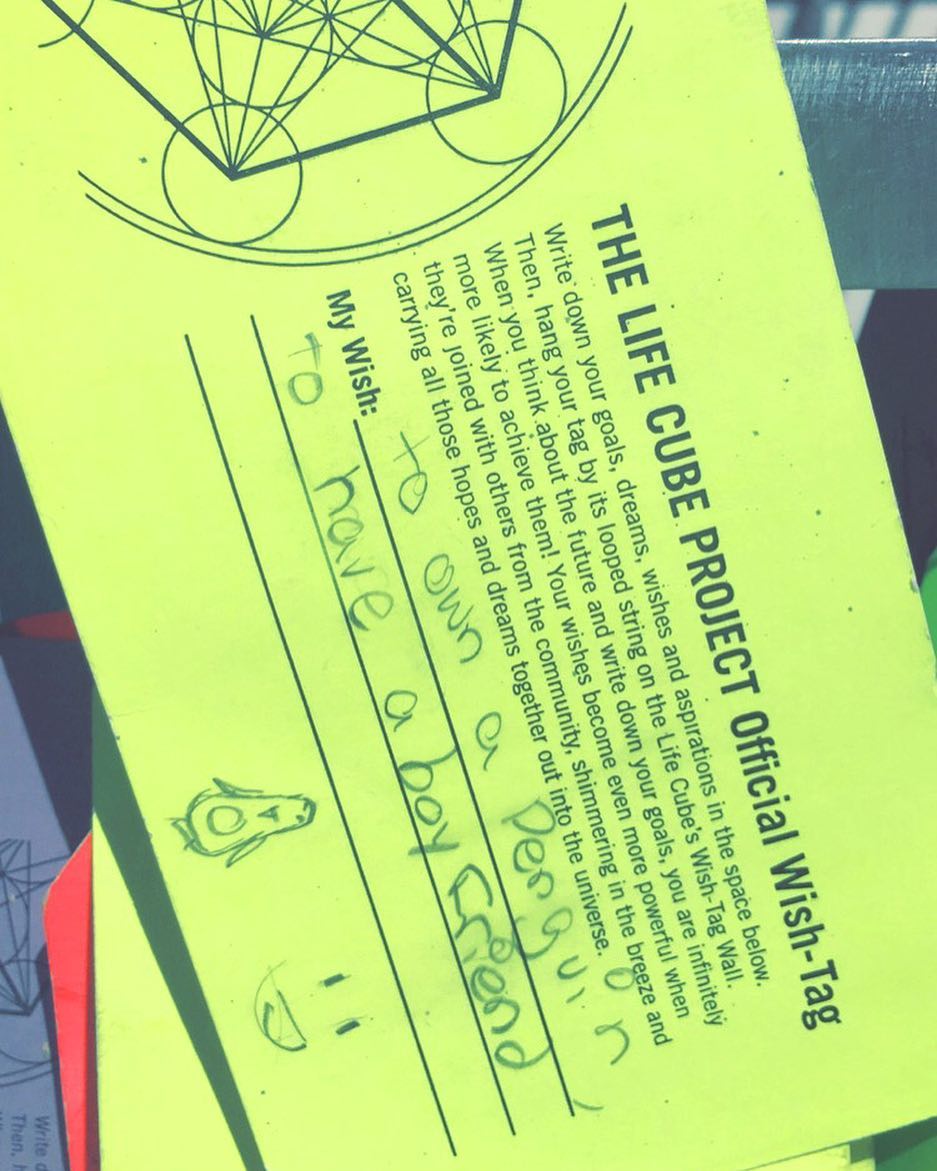 THE LIFE CUBE PROJECT Official Wish-Tag
Write down your goals, dreams, wishes and aspirations in the space below.
Then, hang your tag by its looped string on the Life Cube's Wish-Tag Wall.
When you think about the future and write down your goals, you are infinitely
more likely to achieve them! Your wishes become even more powerful when
they're joined with others from the community, shimmering in the breeze and
carrying all those hopes and dreams together out into the universe.
My Wish: to own a penguin,
To have a boyfriend
Write d
Then, h